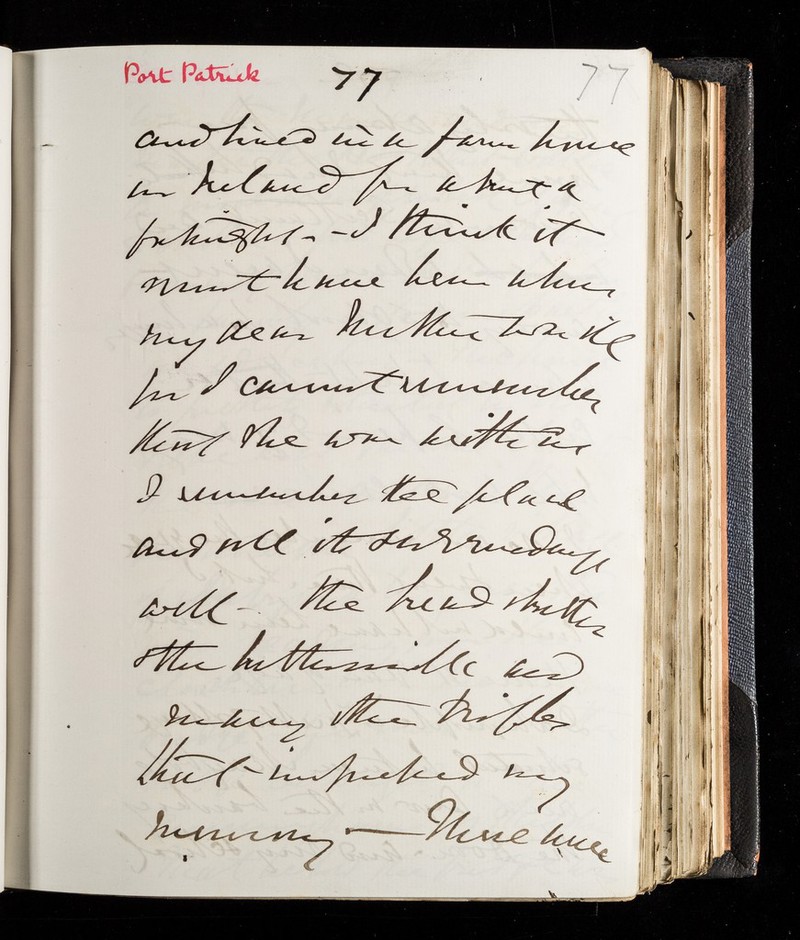 Port Patrick 77 77
and lived in a farm house
in Ireland for about a
fortnight - - I think it
must have been when
my dear Mother was ill
for I cannot remember
that she was with us
I remember the place
and all its surroundings
well - the bread & butter
& the buttermilk and
many other trifles
that impressed my
memory — These were